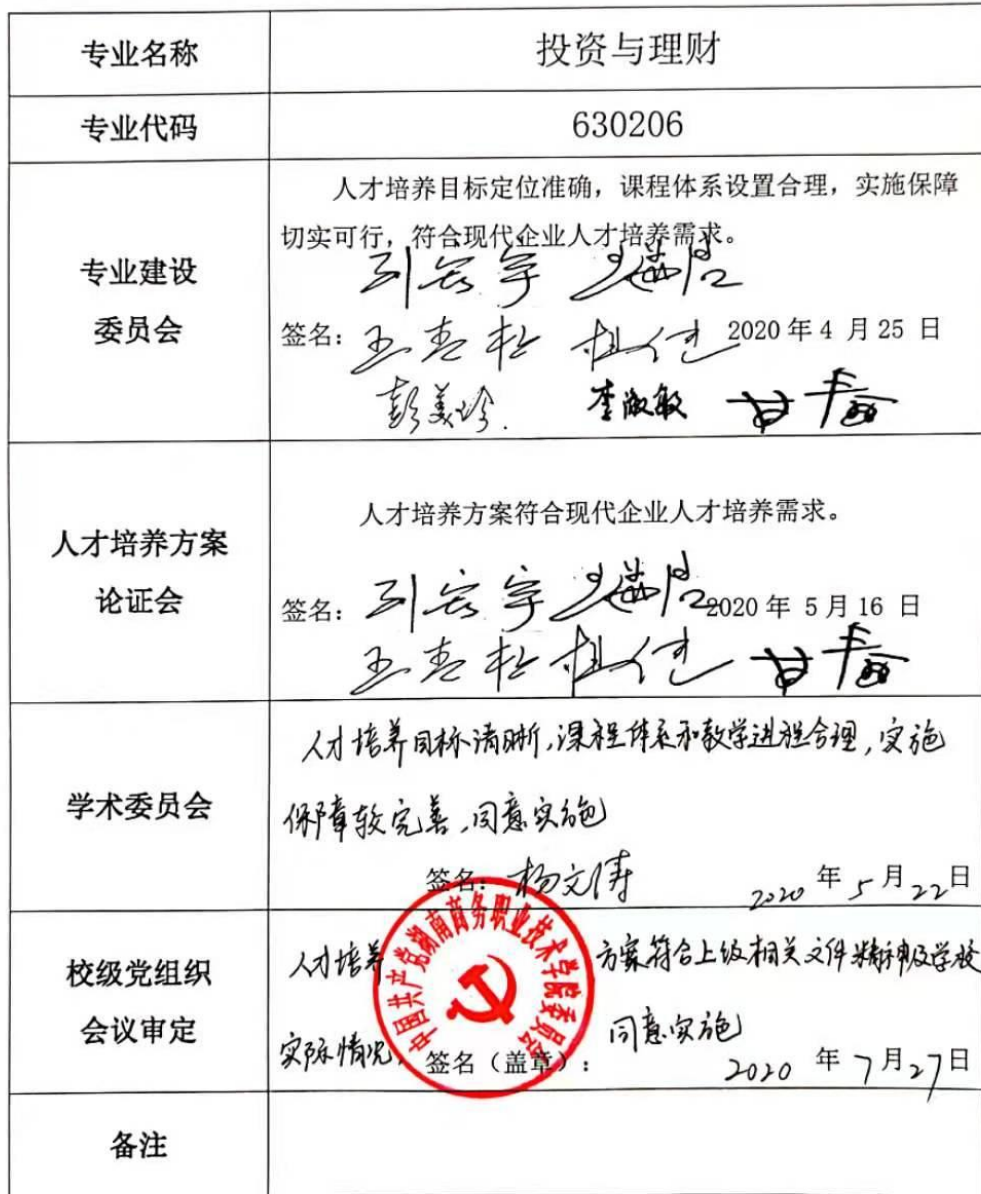 专业名称
投资与理财
专业代码
630206
专业建设
委员会
人才培养目标定位准确，课程体系设置合理，实施保障
切实可行，符合现代企业人才培养需求。
签名：
2020 年 4 月 25 日
彭美珍
李淑敏
人才培养方案
论证会
人才培养方案符合现代企业人才培养需求。
签名：
2020 年 5 月 16 日
学术委员会
人才培养目标清晰，课程体系和教学进程合理，实施
保障较完善，同意实施
签名：杨文涛 2020 年 5 月 22 日
校级党组织
会议审定
人才培养方案符合上级相关文件精神及学校
实际情况，同意实施
签名（盖章）：
2020 年 7 月 27 日
中国共产党湖南商务职业技术学院委员会
备注